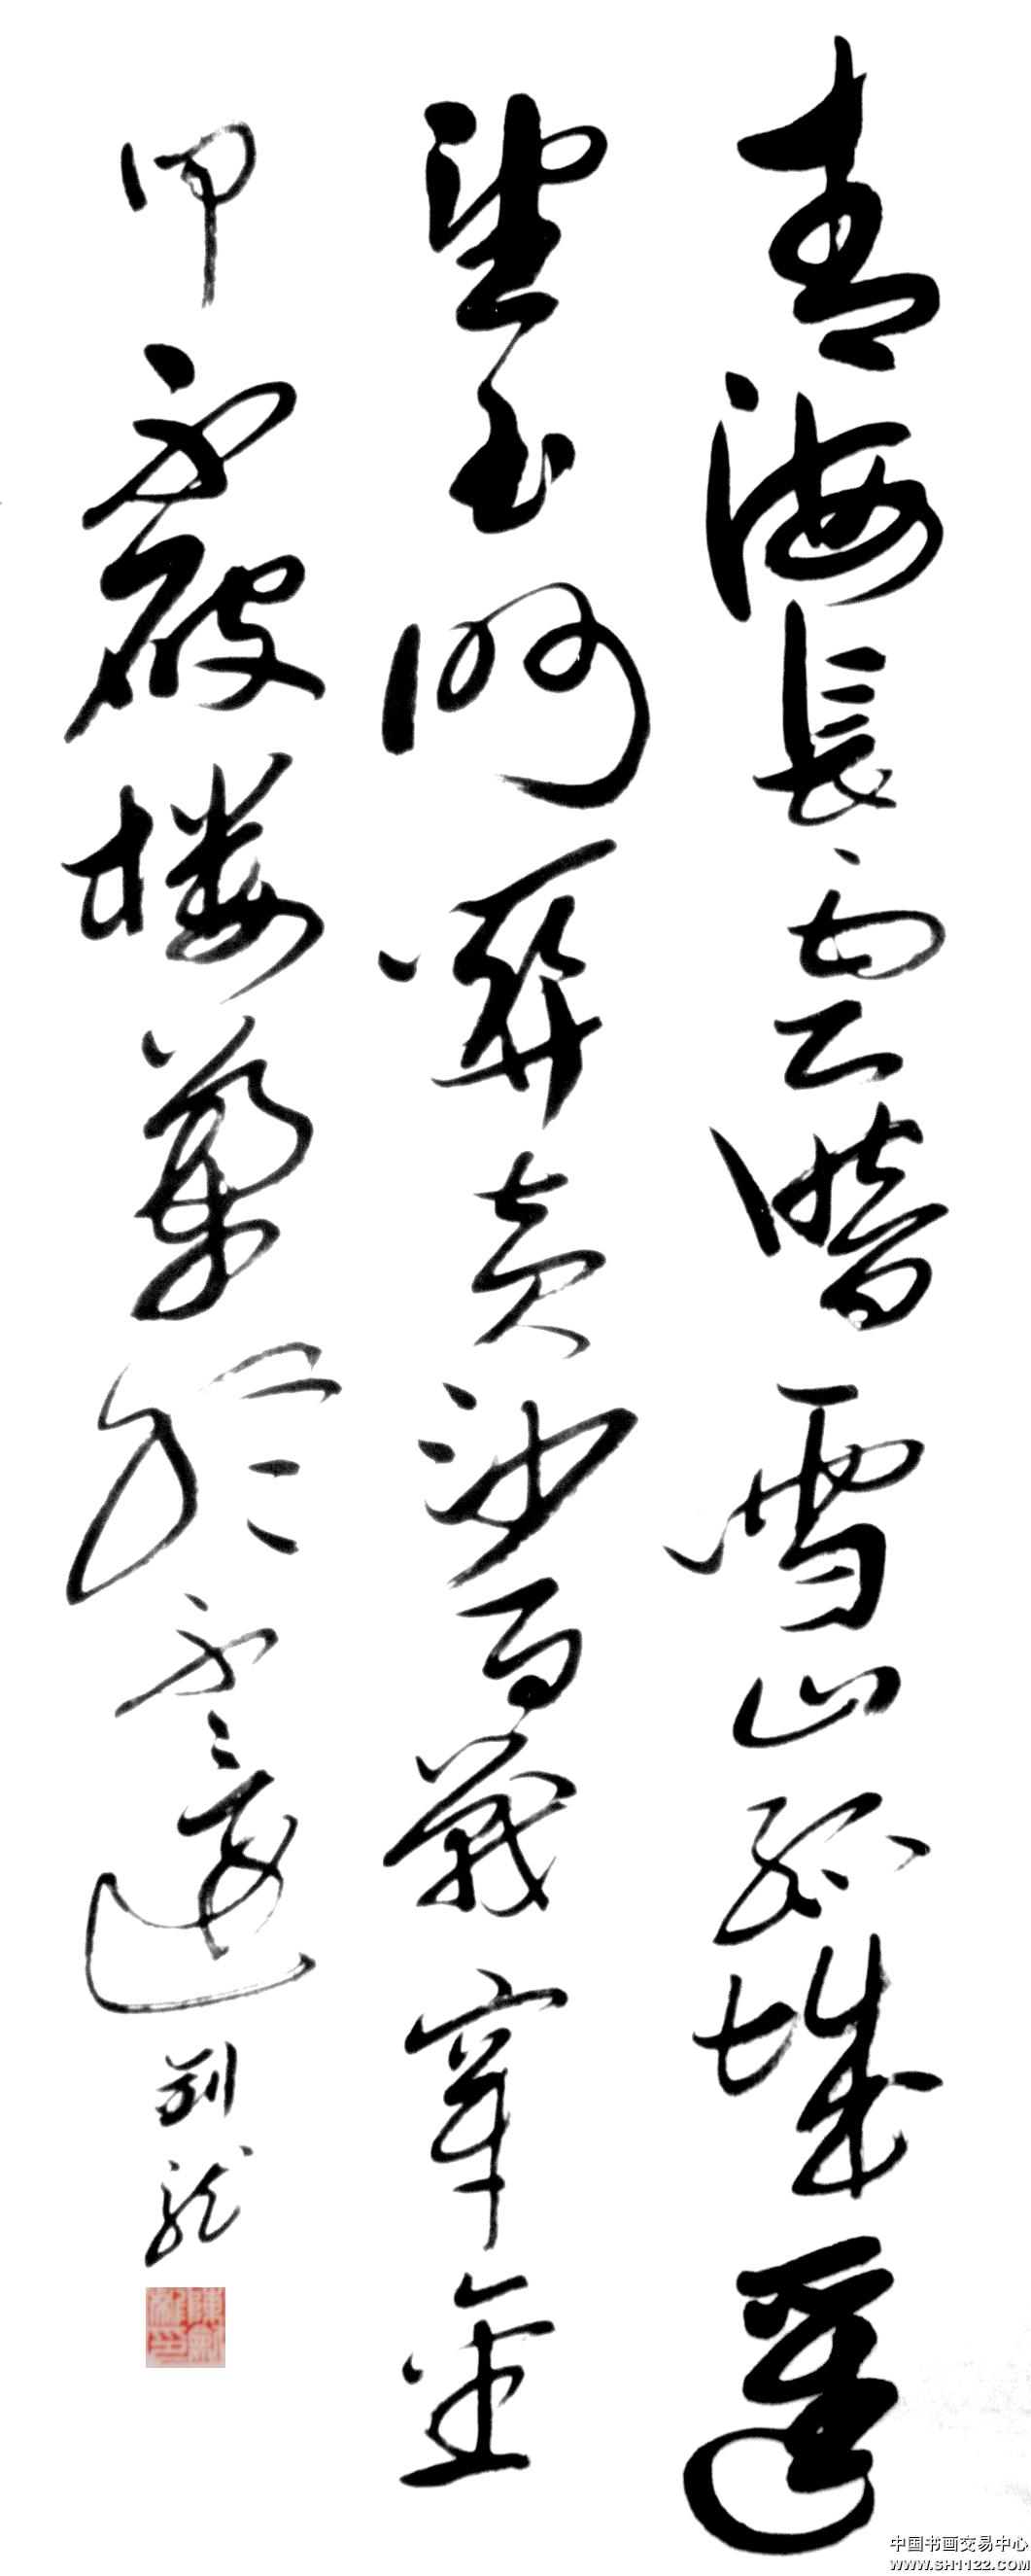 青海長雲暗雪山孤城遥
望玉門關黄沙百戰穿金
甲不破楼蘭終不還
中国书画交易中心
WWW.SH1122.COM